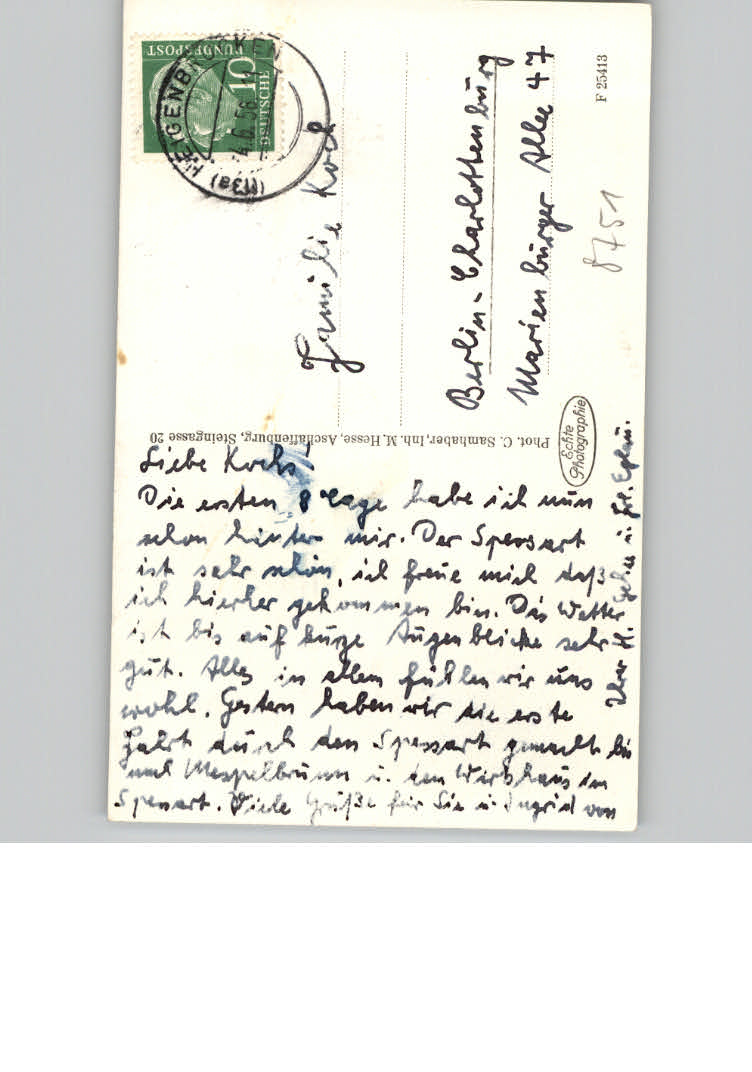 Liebe Kochs!
Die ersten 8 Tage habe ich nun
schon hinter mir. Der Spessart
ist sehr schön, ich freue mich daß
ich hierher gekommen bin. Das Wetter
ist bis auf kurze Augenblicke sehr
gut. Alles in allem fühlen wir uns
wohl. Gestern haben wir die erste
Fahrt durch den Spessart gemacht bis
nach Mespelbrunn u. dem Wirtshaus im
Spessart. Viele Grüße für Sie u. Ingrid von
Ihrer H. u. Frl.
Phot. C. Samhaber, Inh. M. Hesse, Aschaffenburg, Steingasse 20
Echte
Photographie
DEUTSCHE
BUNDESPOST
10
(13a) HEIGENBRÜCKEN
.6.56
Familie Koch
Berlin-Charlottenburg
Marienburger Allee 47
F 25413
8751